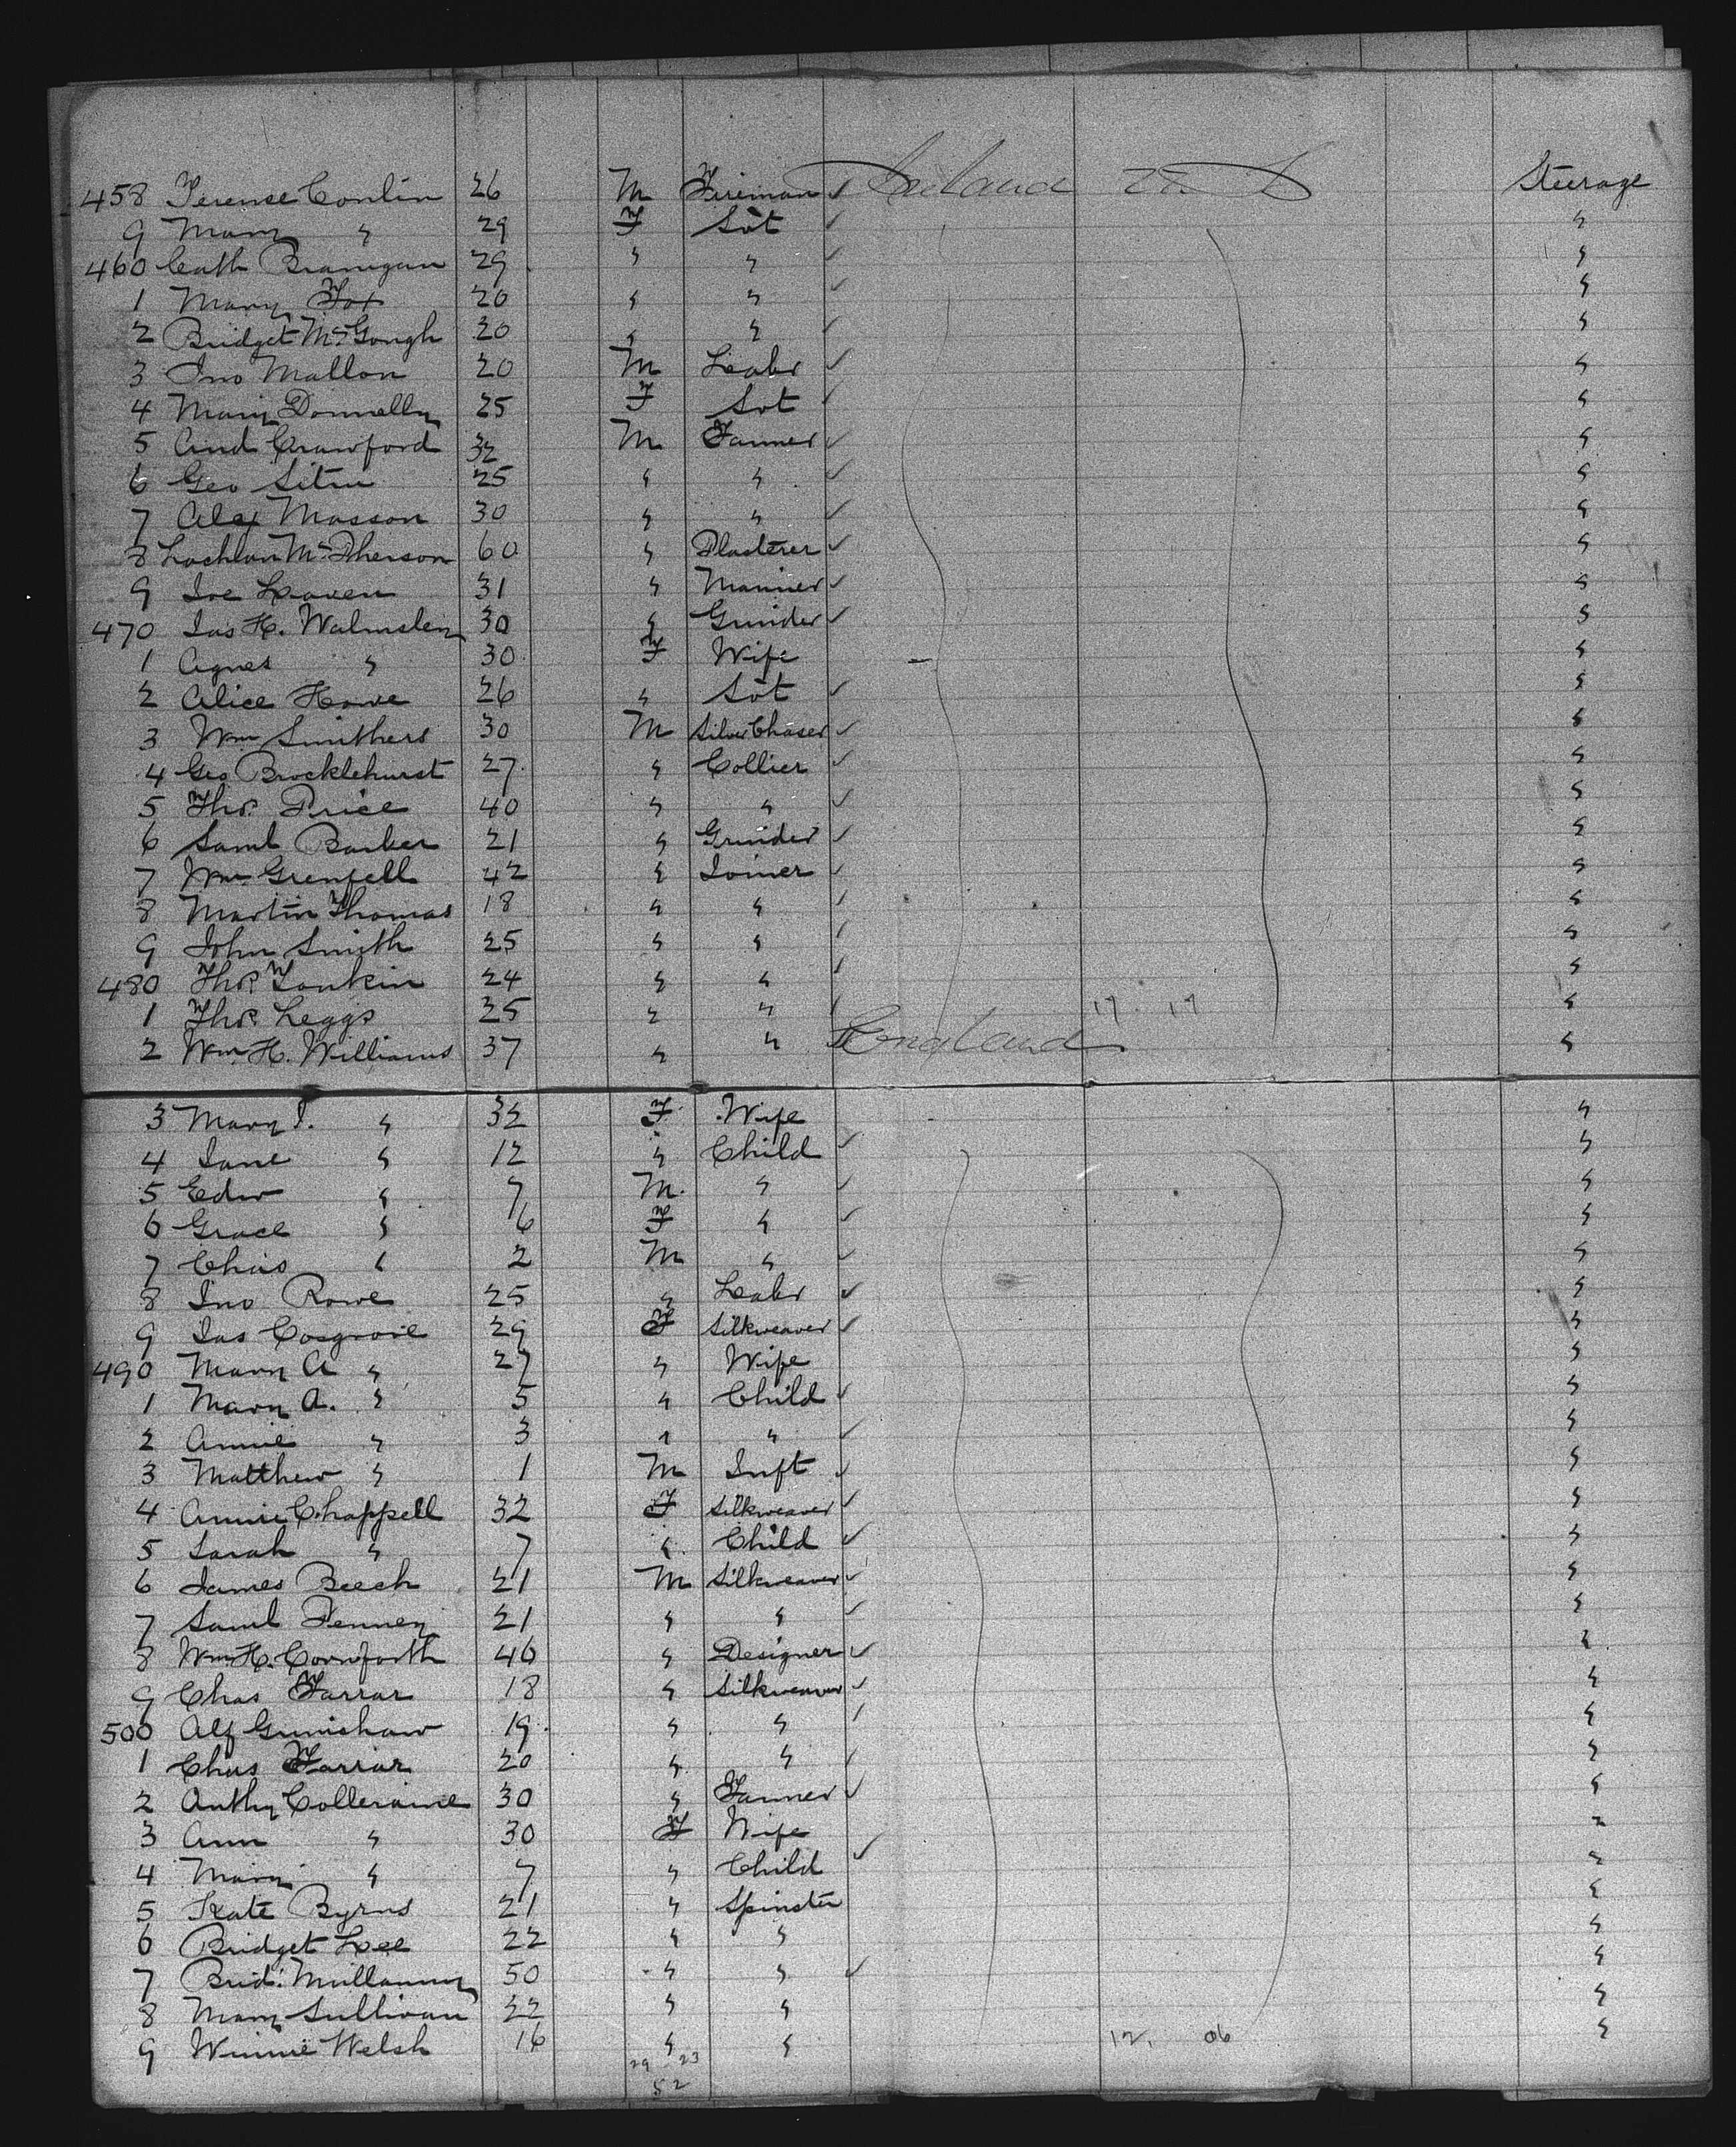 458 Terense Conlin 26 M Fireman ✓ Ireland Steerage
9 Mary " 29 F Sst ✓ "
460 Cath Branigan 29 " " ✓ "
1 Mary Fox 20 " " ✓ "
2 Bridget McGough 20 " " ✓ "
3 Jno Mallon 20 M Labr ✓ "
4 Mary Donnelly 25 F Svt ✓ "
5 And Crawford 32 M Farmer ✓ "
6 Geo 25 " " ✓ "
7 Alex Masson 30 " " ✓ "
8 Lachlan McPherson 60 " Plasterer ✓ "
9 Joe Laven 31 " Mariner ✓ "
470 Jas H. Walmsley 30 " Grinder ✓ "
1 Agnes " 30 F Wife "
2 Alice Howe 26 " Svt ✓ "
3 Wm Smithers 30 M Silver Chaser ✓ "
4 Geo Brocklehurst 27 " Collier ✓ "
5 Thos Price 40 " " ✓ "
6 Saml Barber 21 " Grinder ✓ "
7 Wm Grenfell 42 " Joiner ✓ "
8 Martin Thomas 18 " " "
9 John Smith 25 " " "
480 Thos Tonkin 24 " " "
1 Thos Leggs 25 " " 17 . 17 "
2 Wm H. Williams 37 " " England "
3 Mary J. " 32 F Wife "
4 Jane " 12 " Child ✓ "
5 Edw " 7 M. " ✓ "
6 Grace " 6 F " ✓ "
7 Chas " 2 M " ✓ "
8 Jno Rowe 25 " Labr ✓ "
9 Jas Cosgrove 29 F Silkweaver ✓ "
490 Mary A " 27 " Wife "
1 Mary A. " 5 " Child ✓ "
2 Annie " 3 " " ✓ "
3 Matthew " 1 M Inft ✓ "
4 Annie Chappell 32 F Silkweaver ✓ "
5 Sarah " 7 " Child ✓ "
6 James Beech 21 M Silkweaver ✓ "
7 Saml Penney 21 " " ✓ "
8 Wm H. Cornforth 46 " Designer ✓ "
9 Chas Farrar 18 " Silkweaver ✓ "
500 Alf Grimshaw 19 " " "
1 Chas Farrar 20 " " ✓ "
2 Anthy Colleraine 30 " Farmer ✓ "
3 Ann " 30 F Wife "
4 Mary " 7 " Child ✓ "
5 Kate Byrns 21 " Spinster "
6 Bridget Lee 22 " " "
7 Brid. 50 " " ✓ "
8 Mary Sullivan 22 " " "
9 Winnie Welsh 16 " " 12. 06 "
29 23
52